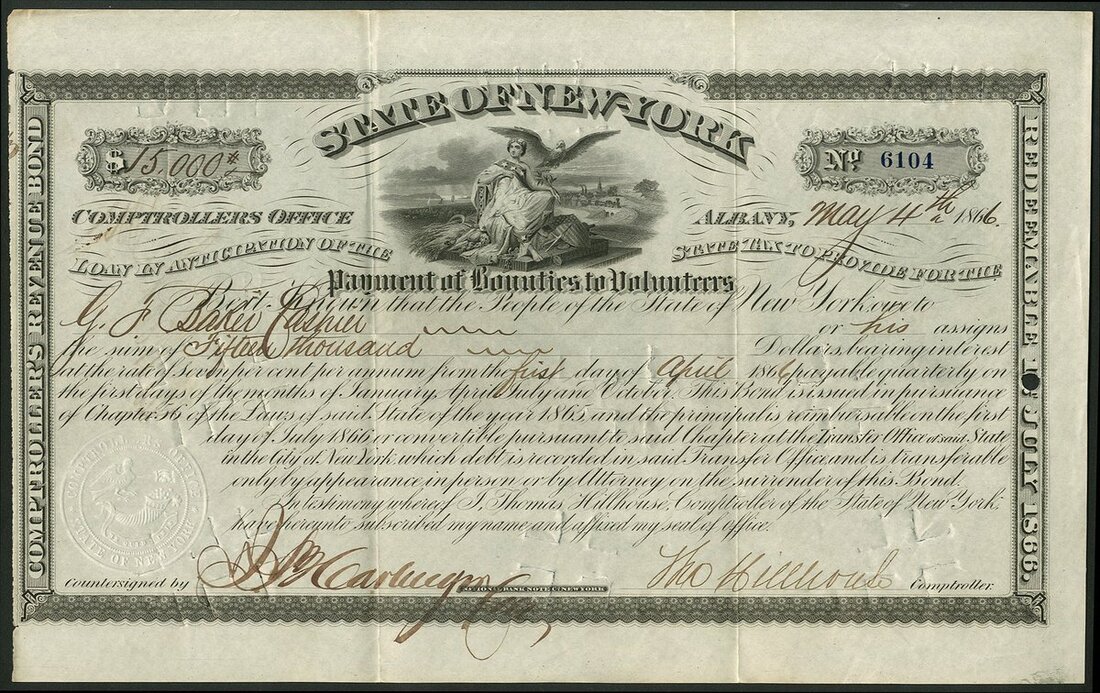 STATE OF NEW-YORK
$15,000
No 6104
COMPTROLLERS OFFICE
ALBANY, May 4th 1866.
LOAN IN ANTICIPATION OF THE STATE TAX TO PROVIDE FOR THE
Payment of Bounties to Volunteers
Be it Known that the People of the State of New York owe to
G. J Baker Cashier or his assigns
the sum of Fifteen thousand Dollars, bearing interest
at the rate of Seven per cent per annum from the first day of April 1866 payable quarterly on
the first days of the months of January, April, July and October. This Bond, is issued in pursuance
of Chapter 56 of the Laws of said State of the year 1865 and the principal is reimbursable on the first
day of July 1866 or convertible pursuant to said Chapter at the Transfer Office of said State
in the City of New York, which debt is recorded in said Transfer Office and is transferable
only by appearance in person or by Attorney on the surrender of this Bond.
In testimony whereof I, Thomas Hillhouse, Comptroller of the State of New York,
have hereunto subscribed my name and affixed my seal of office.
Countersigned by
Tho Hillhouse Comptroller.
NATIONAL BANK NOTE CO. NEW YORK
COMPTROLLER'S REVENUE BOND
REDEEMABLE 1 JULY 1866.
COMPTROLLERS OFFICE
STATE OF NEW YORK